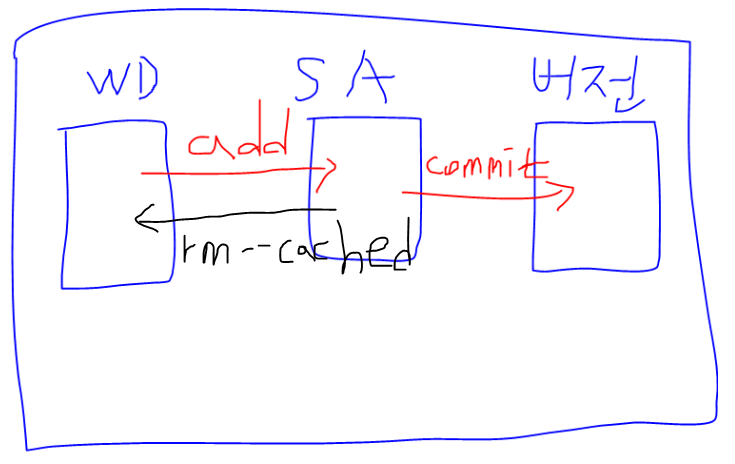 WD SA 버전
add
commit
rm--cached